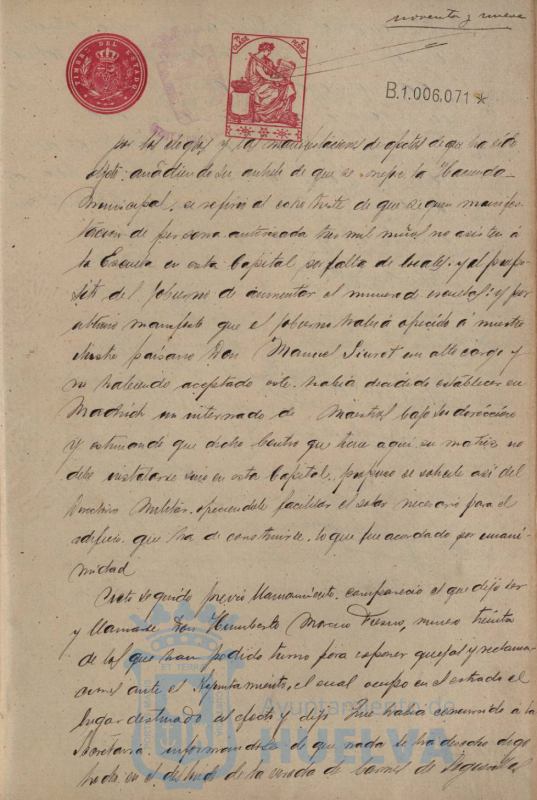 noventa y nueve
TIMBRE DEL ESTADO
CLASE
B.1.006.071 *
por los elogios y las manifestaciones de afectos de que ha sido
objeto: de que se la Hacienda
Municipal, se refirió al de que según manifes-
tacion de persona autorizada tres mil niños no asisten á
la Escuela en esta Capital por falta de locales, y al propó-
sito del Gobierno de aumentar el numero de escuelas: y por
ultimo manifestó que el Gobierno habia ofrecido á nuestro
ilustre paisano Don Manuel Siurot un alto cargo y
no habiendo aceptado este habia decidido establecer en
Madrid un internado de Maestros bajo su direccion
y estimando que dicho Centro que tiene aqui su matriz no
debe instalarse sino en esta Capital, propuso se solicite asi del
Directorio Militar, ofreciendole facilitar el solar necesario para el
edificio que ha de construirse, lo que fue acordado por unani-
midad
Acto seguido previo llamamiento, comparecio el que dijo ser
y llamarse Don Humberto numero treinta
de los que han pedido turno para exponer quejas y reclama-
ciones ante el Ayuntamiento, el cual ocupó en el estrado el
lugar destinado al efecto y dijo: Que habia concurrido á la
Secretaria informandole de que nada se ha
en el deslinde de la vereda de carne de
EL TERRÆ
Ayuntamiento de
HUELVA